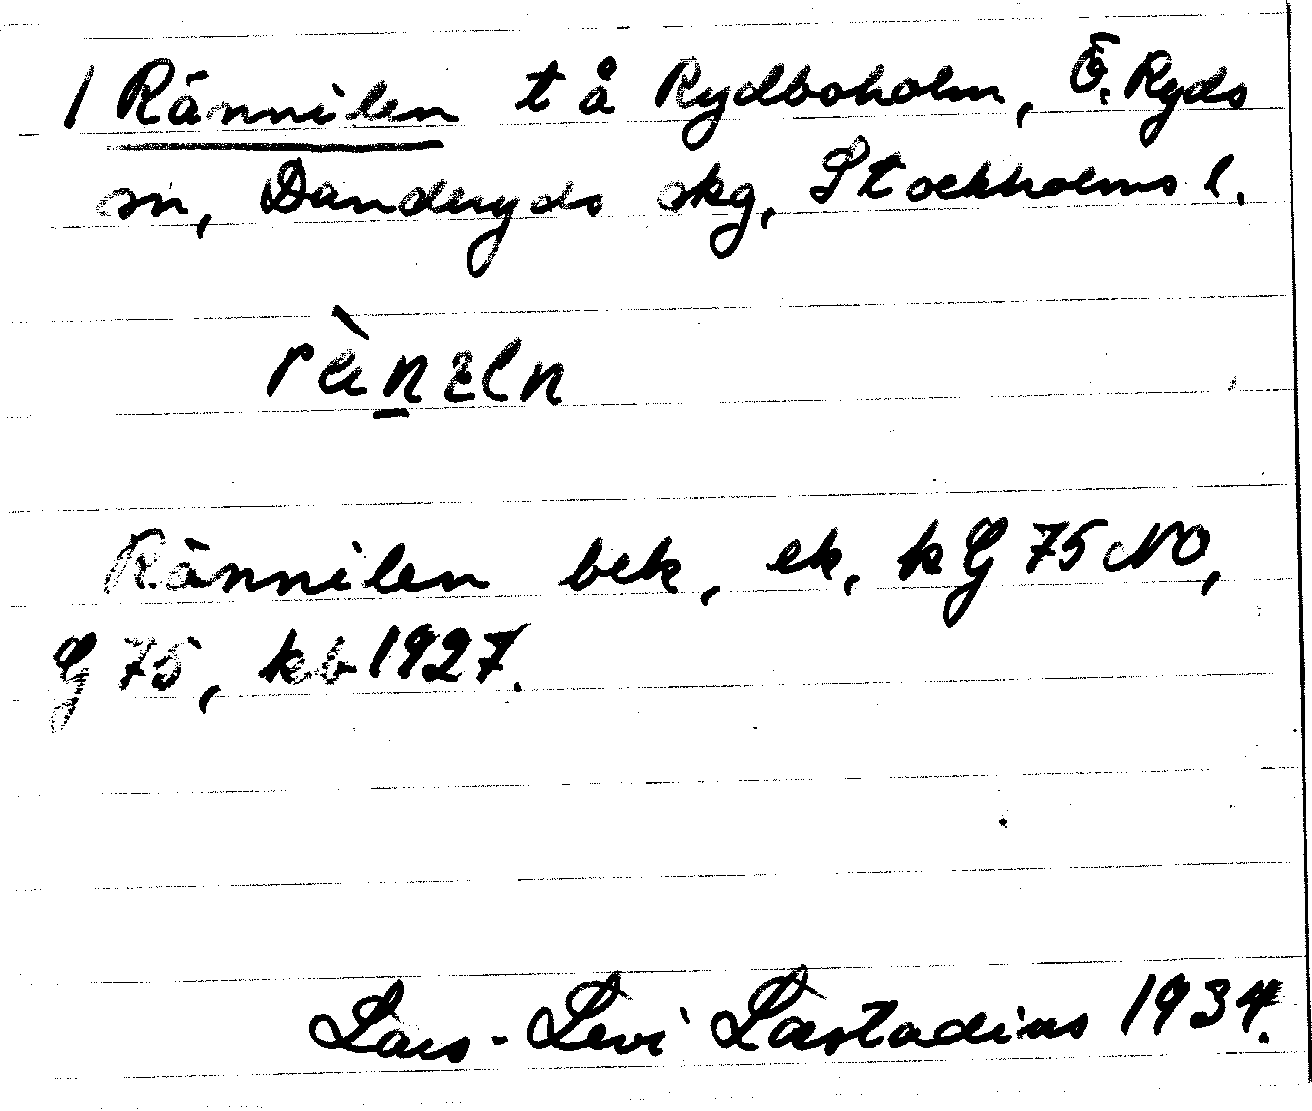 / Rännilen t å Rydboholm, Ö. Ryds
sn, Danderyds skg, Stockholms l.
rä̀n̲ɛln
Rännilen bek, ek, kG 75 NO,
G 75, kb 1927.
Lars-Levi Læstadius 1934.